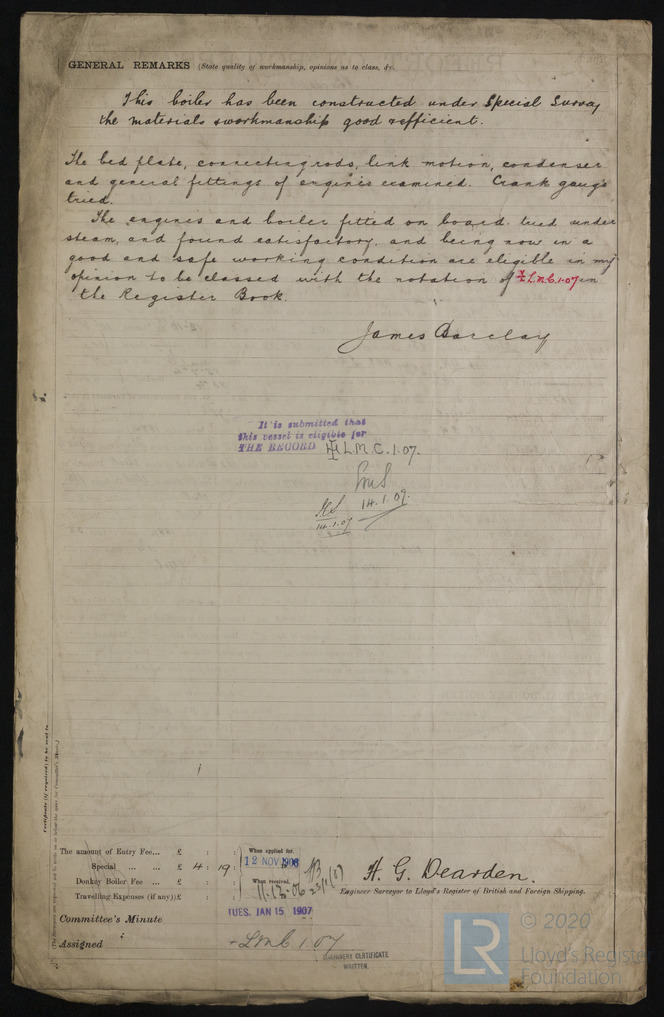 GENERAL REMARKS (State quality of workmanship, opinions as to class, &c.
This boiler has been constructed under Special Survey
the materials & workmanship good & efficient.
The bed plate, connecting rods, link motion, condenser
and general fittings of engines examined. Crank gauge
tried.
The engines and boiler fitted on board tried under
steam, and found satisfactory, and being now in a
good and safe working condition are eligible in my
opinion to be classed with the notation of L.M.C. 1.07 in
the Register Book.
James Barclay
It is submitted that
this vessel is eligible for
THE RECORD L.M.C. 1.07.
14.1.07.
14.1.07
Certificate (if required) to be sent to
The amount of Entry Fee... £ : :
Special ... ... £ 4 : 19 :
Donkey Boiler Fee ... £ : :
Travelling Expenses (if any) £ : :
When applied for.
12 NOV 1906
When received.
11.12.06
H. G. Dearden.
Engineer Surveyor to Lloyd's Register of British and Foreign Shipping.
Committee's Minute
TUES. JAN 15 1907
Assigned
+ LMC 1.07
MACHINERY CERTIFICATE
WRITTEN.
LR
© 2020
Lloyd's Register
Foundation